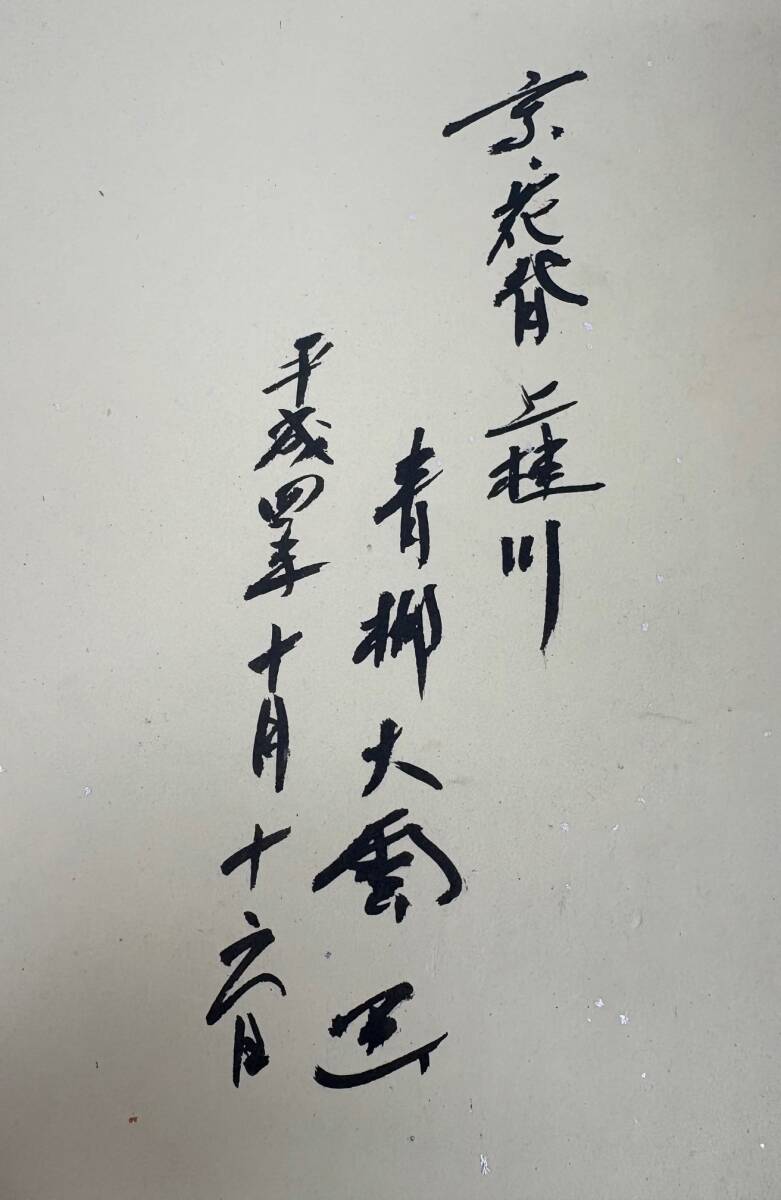 京・花背 上桂川
青柳大雲
平成四年十月十六日